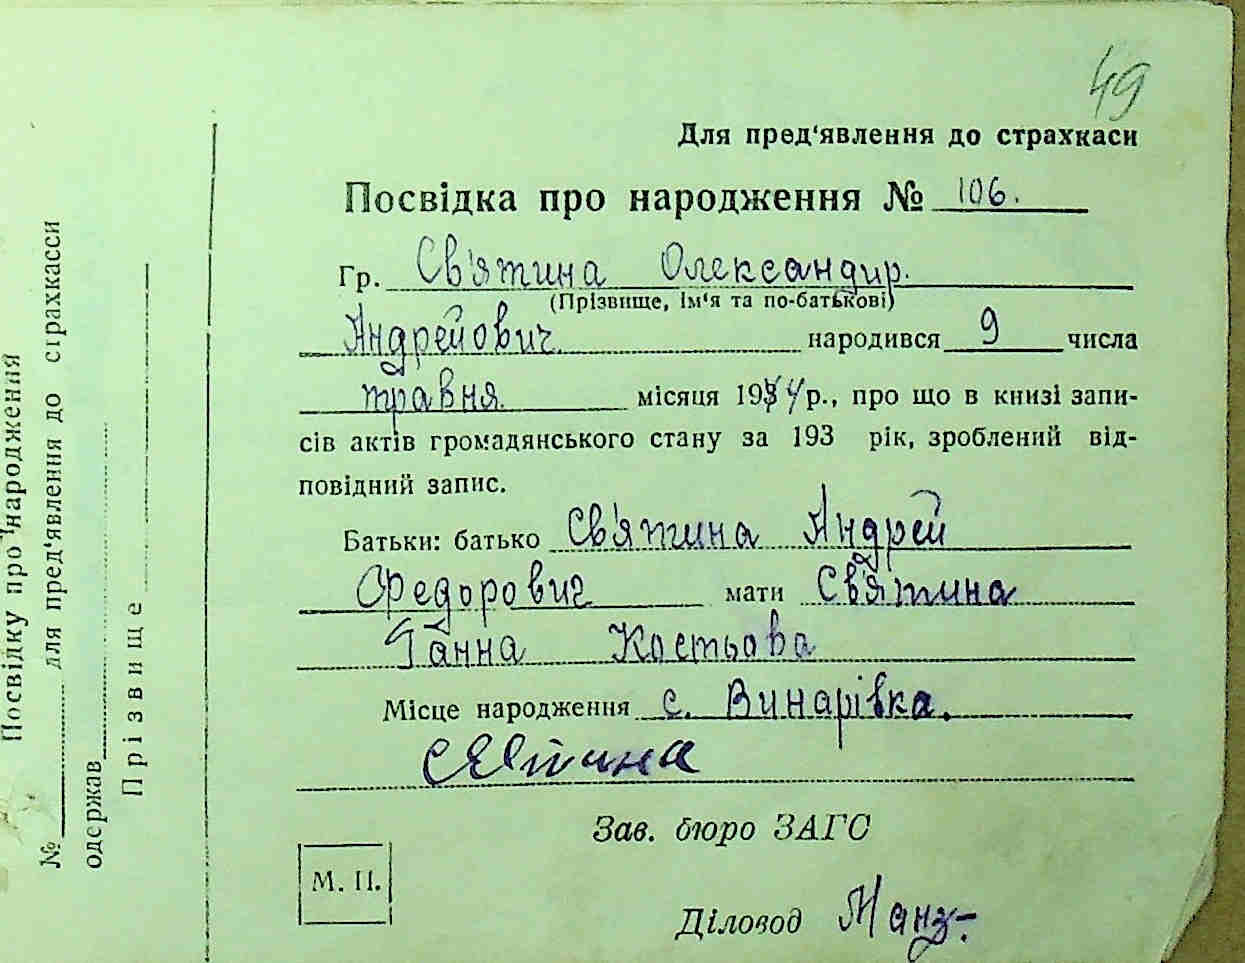 49
Для пред‘явлення до страхкаси
Посвідка про народження № 106.
Гр. Св'ятина Олександир.
(Прізвище, ім‘я та по-батькові)
Андрейович народився 9 числа
травня місяця 19 4 р., про що в книзі запи-
сів актів громадянського стану за 193 рік, зроблений від-
повідний запис.
Батьки: батько Св'ятина Андрей
Федорович мати Св'ятина
Ганна Костьова
Місце народження с. Винарівка.
Зав. бюро ЗАГС
М. П.
Діловод
Посвідку про народження
№ для пред‘явлення до страхкасси
одержав
Прізвище